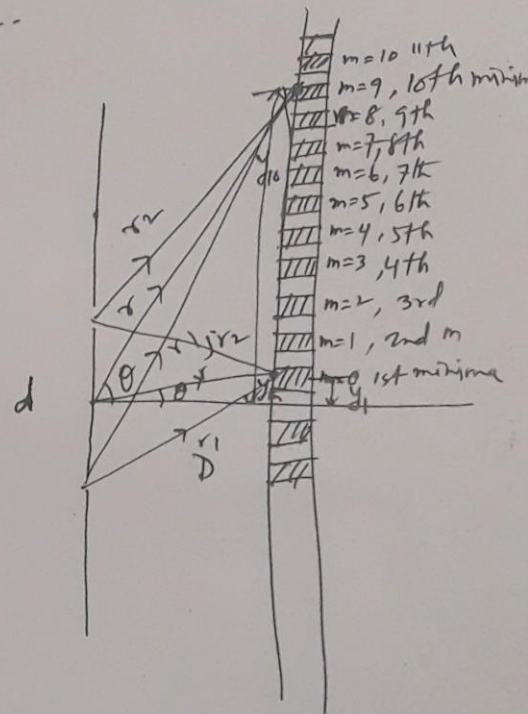 m=10 11th
m=9, 10th minima
m=8, 9th
m=7, 8th
m=6, 7th
m=5, 6th
m=4, 5th
m=3, 4th
m=2, 3rd
m=1, 2nd m
m=0 1st minima
y1
r2
r
d10
r1
r2
θ
θ
r
d
r1
D